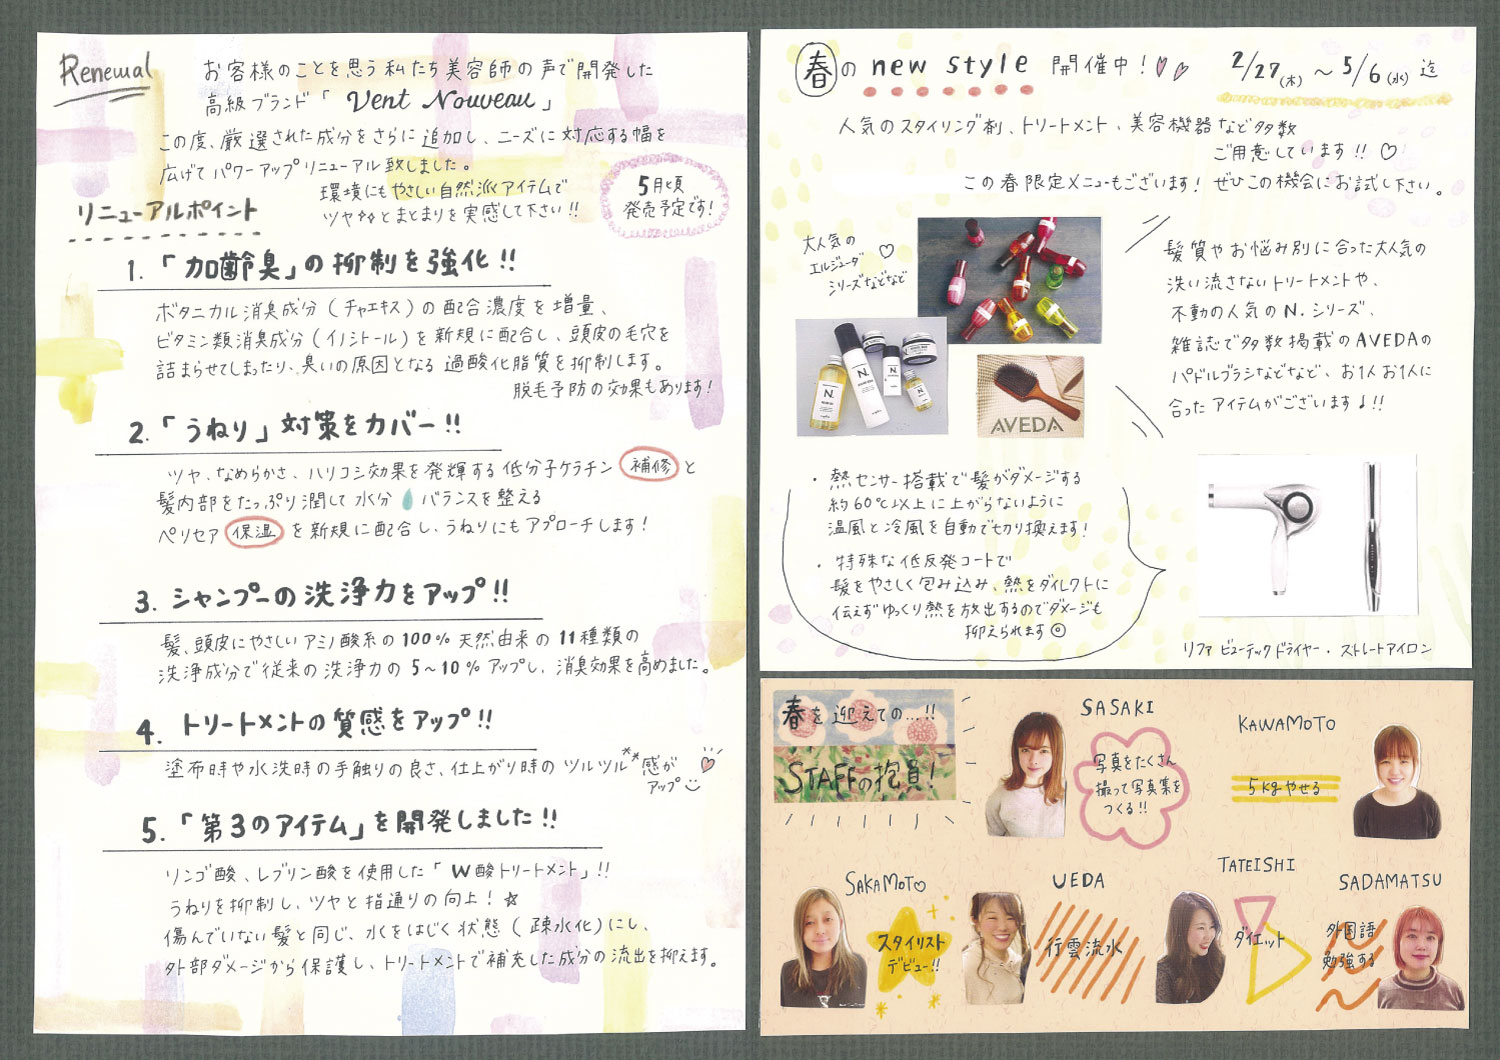 Renewal
お客様のことを思う私たち美容師の声で開発した
高級ブランド「Vent Nouveau」
この度、厳選された成分をさらに追加し、ニーズに対応する幅を
広げてパワーアップリニューアル致しました。
環境にもやさしい自然派アイテムで
ツヤとまとまりを実感して下さい!!
5月頃
発売予定です!
リニューアルポイント
1.「加齢臭」の抑制を強化!!
ボタニカル消臭成分(チャエキス)の配合濃度を増量、
ビタミン類消臭成分(イノシトール)を新規に配合し、頭皮の毛穴を
詰まらせてしまったり、臭いの原因となる過酸化脂質を抑制します。
脱毛予防の効果もあります!
2.「うねり」対策をカバー!!
ツヤ、なめらかさ、ハリコシ効果を発揮する低分子ケラチン 補修 と
髪内部をたっぷり潤して水分バランスを整える
ペリセア 保湿 を新規に配合し、うねりにもアプローチします!
3. シャンプーの洗浄力をアップ!!
髪、頭皮にやさしいアミノ酸系の100%天然由来の11種類の
洗浄成分で従来の洗浄力の5~10%アップし、消臭効果を高めました。
4. トリートメントの質感をアップ!!
塗布時や水洗時の手触りの良さ、仕上がり時のツルツル感が
アップ
5.「第3のアイテム」を開発しました!!
リンゴ酸、レブリン酸を使用した「W酸トリートメント」!!
うねりを抑制し、ツヤと指通りの向上!☆
傷んでいない髪と同じ、水をはじく状態(疎水化)にし、
外部ダメージから保護し、トリートメントで補充した成分の流出を抑えます。
春の new style 開催中!♡♡
2/27(木)~5/6(水)迄
人気のスタイリング剤、トリートメント、美容機器など多数
ご用意しています!!♡
この春限定メニューもございます! ぜひこの機会にお試し下さい。
大人気の♡
エルジューダ
シリーズなどなど
N.
N.
N.
AVEDA
髪質やお悩み別に合った大人気の
洗い流さないトリートメントや、
不動の人気のN.シリーズ、
雑誌で多数掲載のAVEDAの
パドルブラシなどなど、お1人お1人に
合ったアイテムがございます♩!!
・熱センサー搭載で髪がダメージする
約60℃以上に上がらないように
温風と冷風を自動で切り換えます!
・特殊な低反発コートで
髪をやさしく包み込み、熱をダイレクトに
伝えずゆっくり熱を放出するのでダメージも
抑えられます◎
リファ ビューテック ドライヤー・ストレートアイロン
春を迎えての...!!
STAFFの抱負!
SASAKI
写真をたくさん
撮って写真集を
つくる!!
KAWAMOTO
5kgやせる
SAKAMOTO
スタイリスト
デビュー!!
UEDA
行雲流水
TATEISHI
ダイエット
SADAMATSU
外国語
勉強する